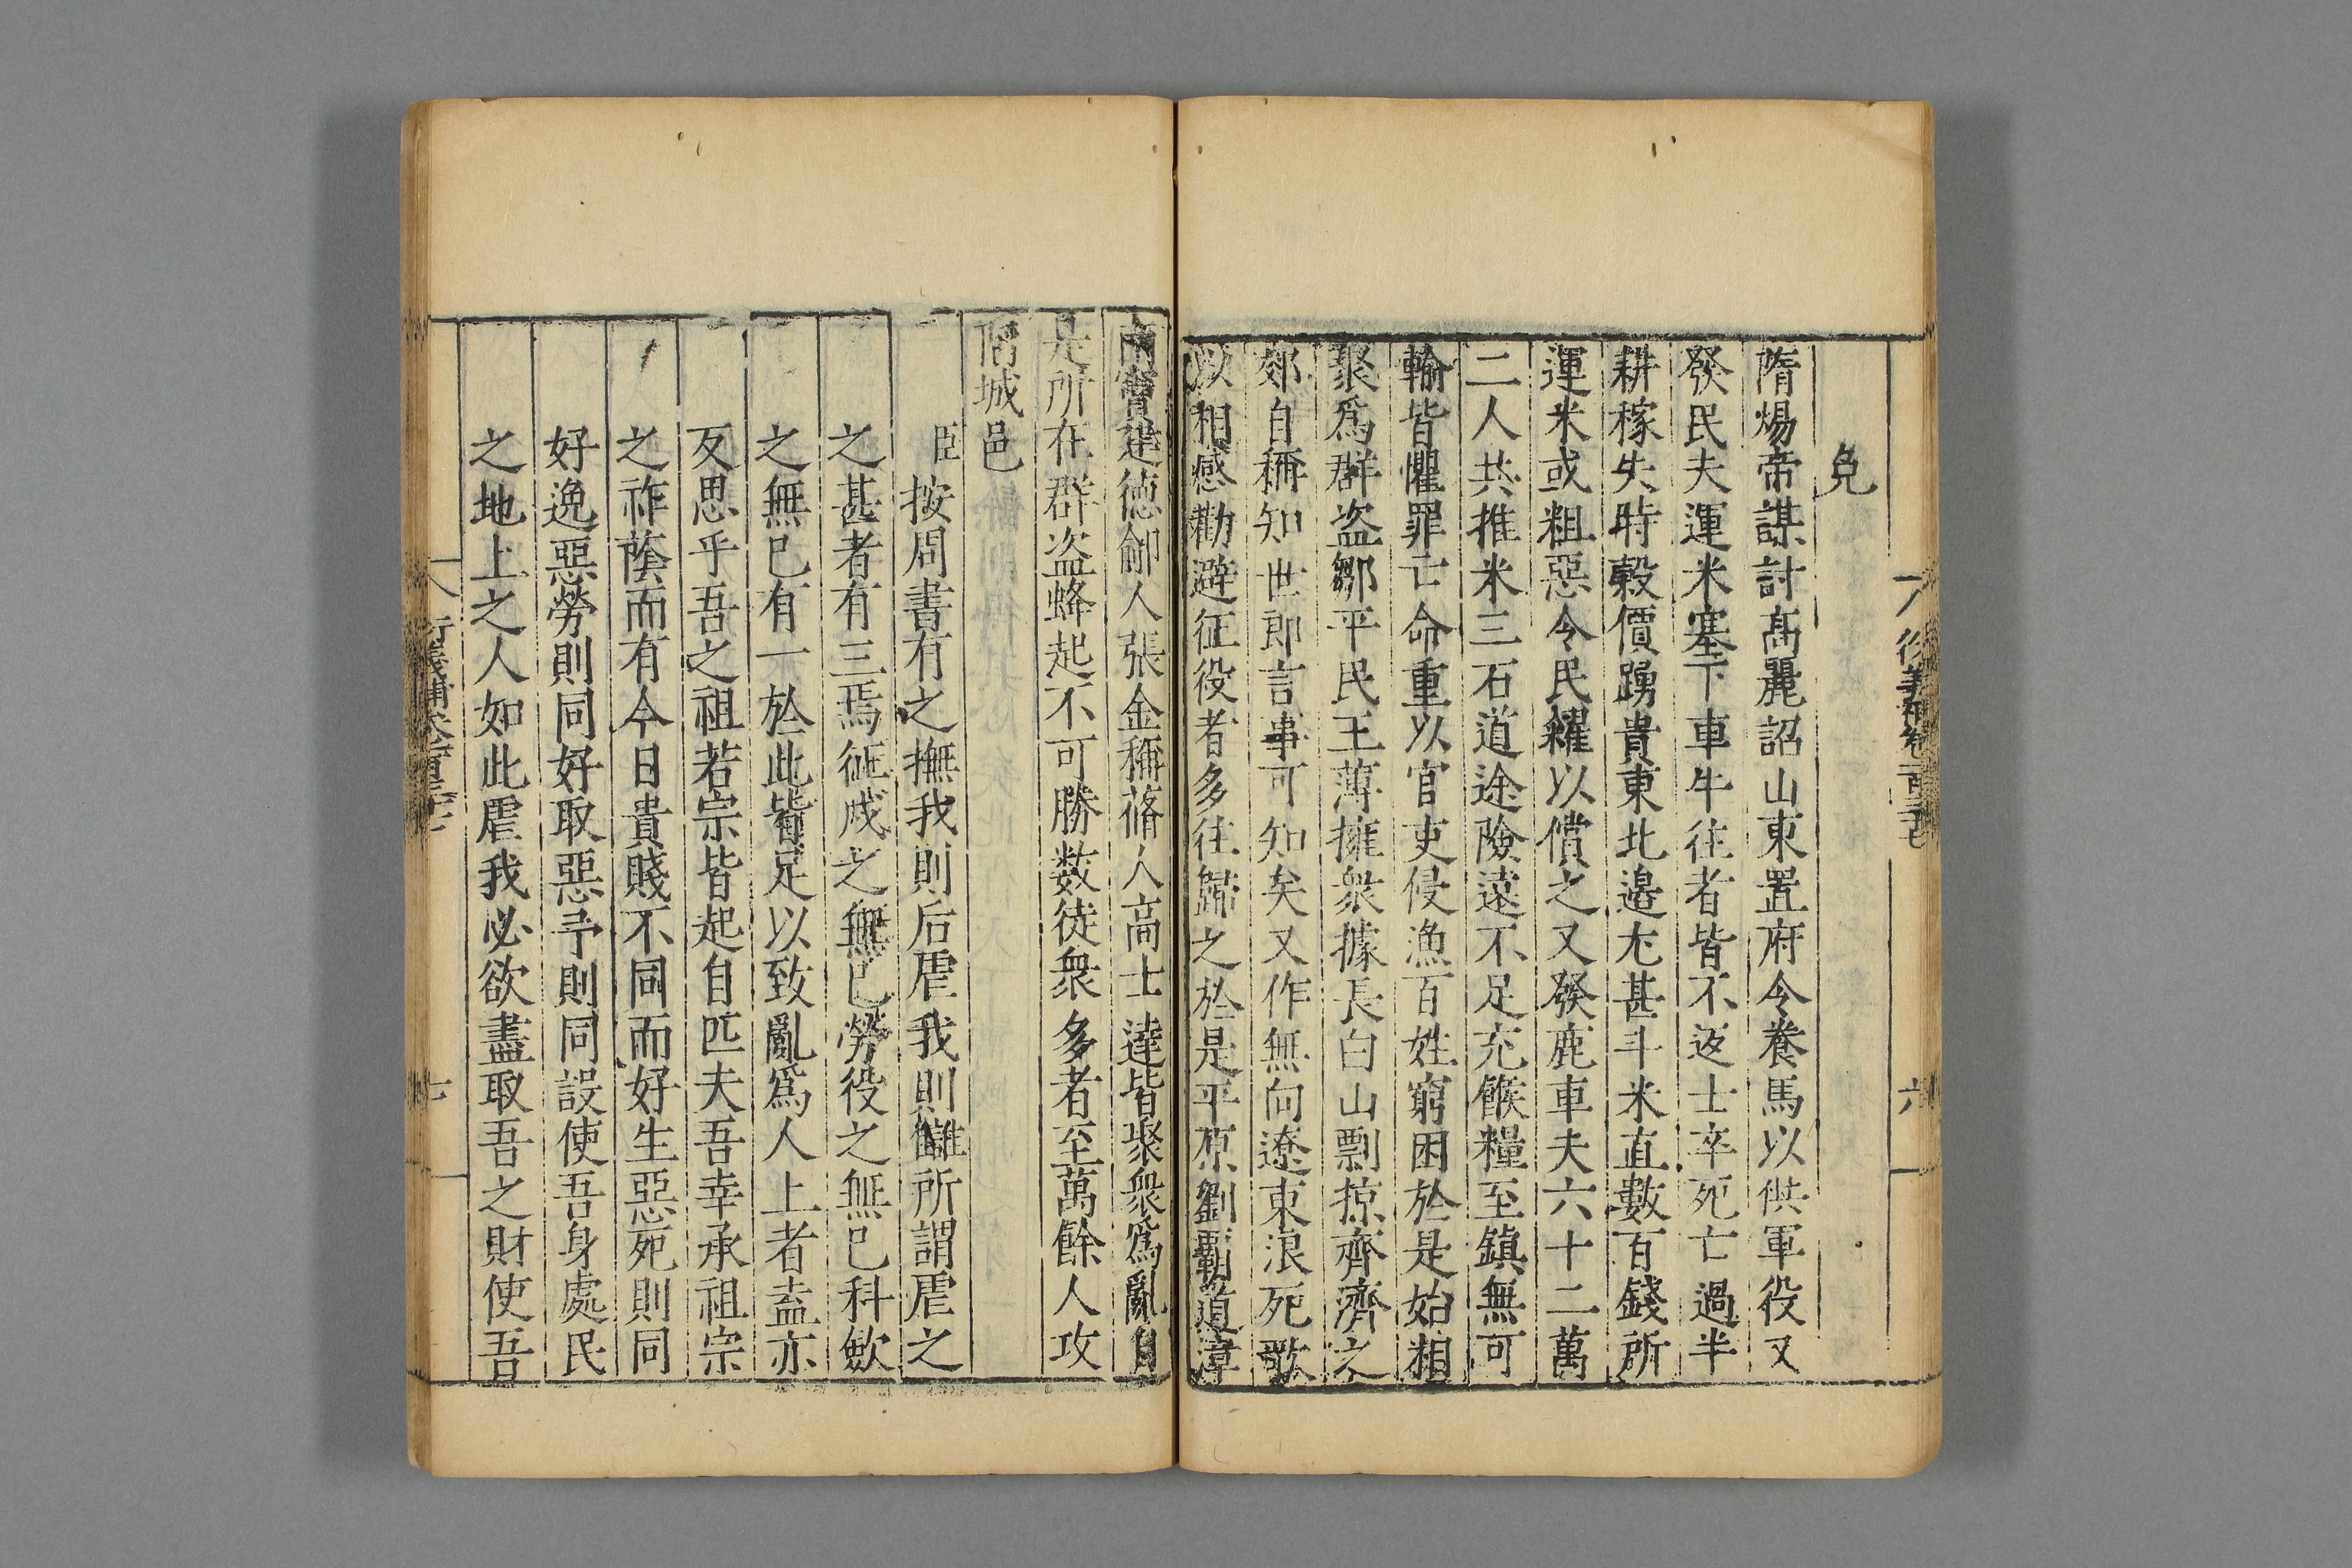 免
隋煬帝謀討高麗詔山東置府令養馬以供軍役又
發民夫運米塞下車牛往者皆不返士卒死亡過半
耕稼失時穀價踴貴東北邉尤甚斗米直數百錢所
運米或粗惡令民糴以償之又發鹿車夫六十二萬
二人共推米三石道途險遠不足充餱糧至鎮無可
輸皆懼罪亡命重以官吏侵漁百姓窮困於是始相
聚爲群盗鄒平民王薄擁衆據長白山剽掠齊濟之
郊自稱知世郎言事可知矣又作無向遼東浪死歌
以相感勸避征役者多往歸之於是平原劉霸道漳
南竇建德鄃人張金稱蓨人高士達皆聚衆爲亂自
是所在群盗蜂起不可勝数徒衆多者至萬餘人攻
陷城邑
臣按周書有之撫我則后虐我則讎所謂虐之
之甚者有三焉征戍之無已勞役之無已科歛
之無已有一於此皆足以致亂爲人上者盍亦
反思乎吾之祖若宗皆起自匹夫吾幸承祖宗
之祚蔭而有今日貴賤不同而好生惡死則同
好逸惡勞則同好取惡予則同設使吾身處民
之地上之人如此虐我必欲盡取吾之財使吾
衍義補卷百
六
七